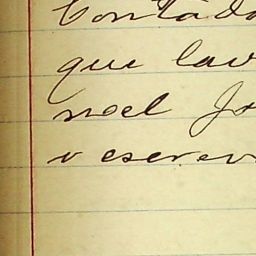 Contado
que lav
noel Jo
o escrev